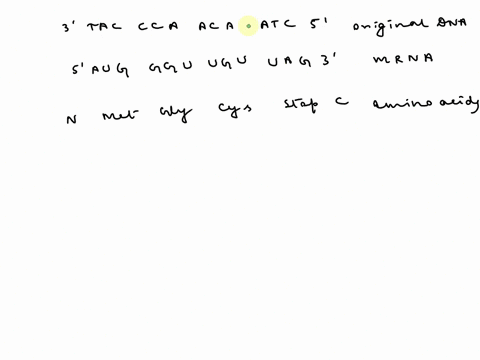 3' TAC CCA ACA ATC 5' original DNA
5' AUG GGU UGU UAG 3' mRNA
N Met Gly Cys Stop C amino acids